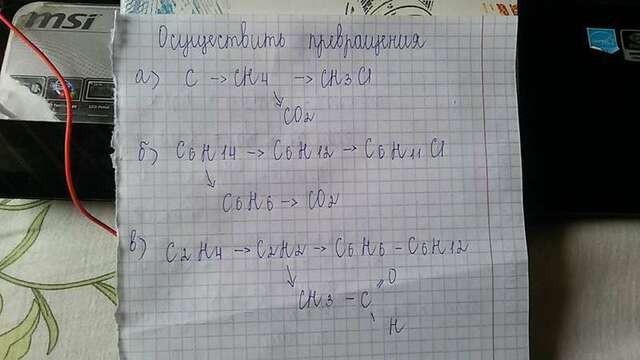 msi
Осуществить превращения
а) C → CH4 → CH3Cl
↘ CO2
б) C6H14 → C6H12 → C6H11Cl
↘ C6H6 → CO2
в) C2H4 → C2H2 → C6H6 - C6H12
↘ CH3 - C
O
H